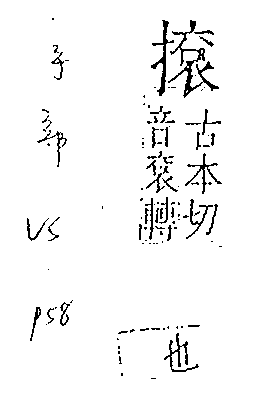 㨰
古本切
音袞轉
也
手部 V5 P58